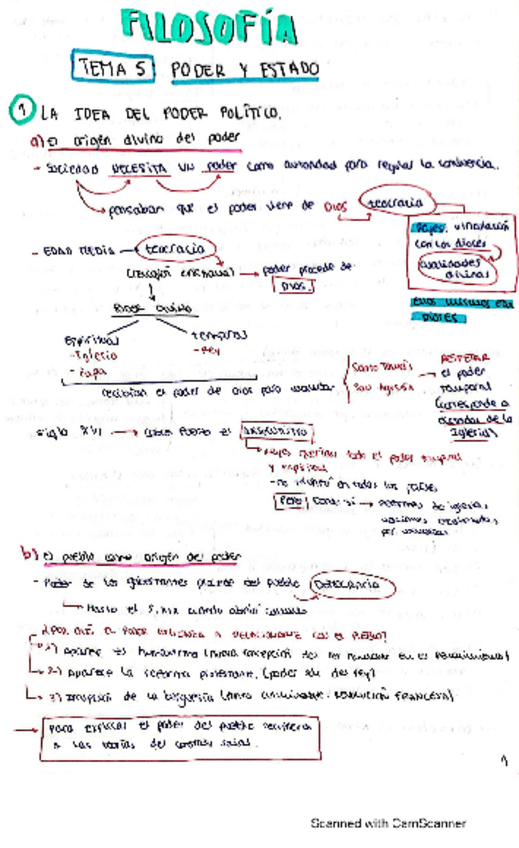 FILOSOFÍA
TEMA 5 PODER Y ESTADO
1 LA IDEA DEL PODER POLÍTICO.
a) El origen divino del poder
- Sociedad NECESITA UN poder como autoridad para regular la convivencia.
pensaban que el poder viene de DIOS teocracia
Reyes, vinculación
con los dioses
cualidades
divinas
Ellos mismos eran
DIOSES
- EDAD MEDIA teocracia
poder procede de
DIOS.
PODER DIVINO
Espiritual
- Iglesia
- Papa
temporal
- Rey
recibían el poder de dios para
Santo Tomás
San Agustín
RESPETAR
el poder
temporal
Corresponde a
la
Iglesia
Siglo XVI ABSOLUTISMO
Reyes querían todo el poder temporal
y espiritual
- no en todos los países
PERO donde sí reformas de iglesia,
b) El pueblo como origen del poder
- Poder de los gobernantes procede del pueblo DEMOCRACIA
Hasta el S. XIX
¿POR QUÉ EL PODER COMIENZA A RELACIONARSE CON EL PUEBLO?
1) Aparece el humanismo (nueva concepción del ser humano en el RENACIMIENTO)
2) Aparece la reforma protestante. (poder del rey)
3) Irrupción de la burguesía REVOLUCIÓN FRANCESA)
Para explicar el poder del pueblo recurrieron
a las teorías del contrato social.
1
Scanned with CamScanner